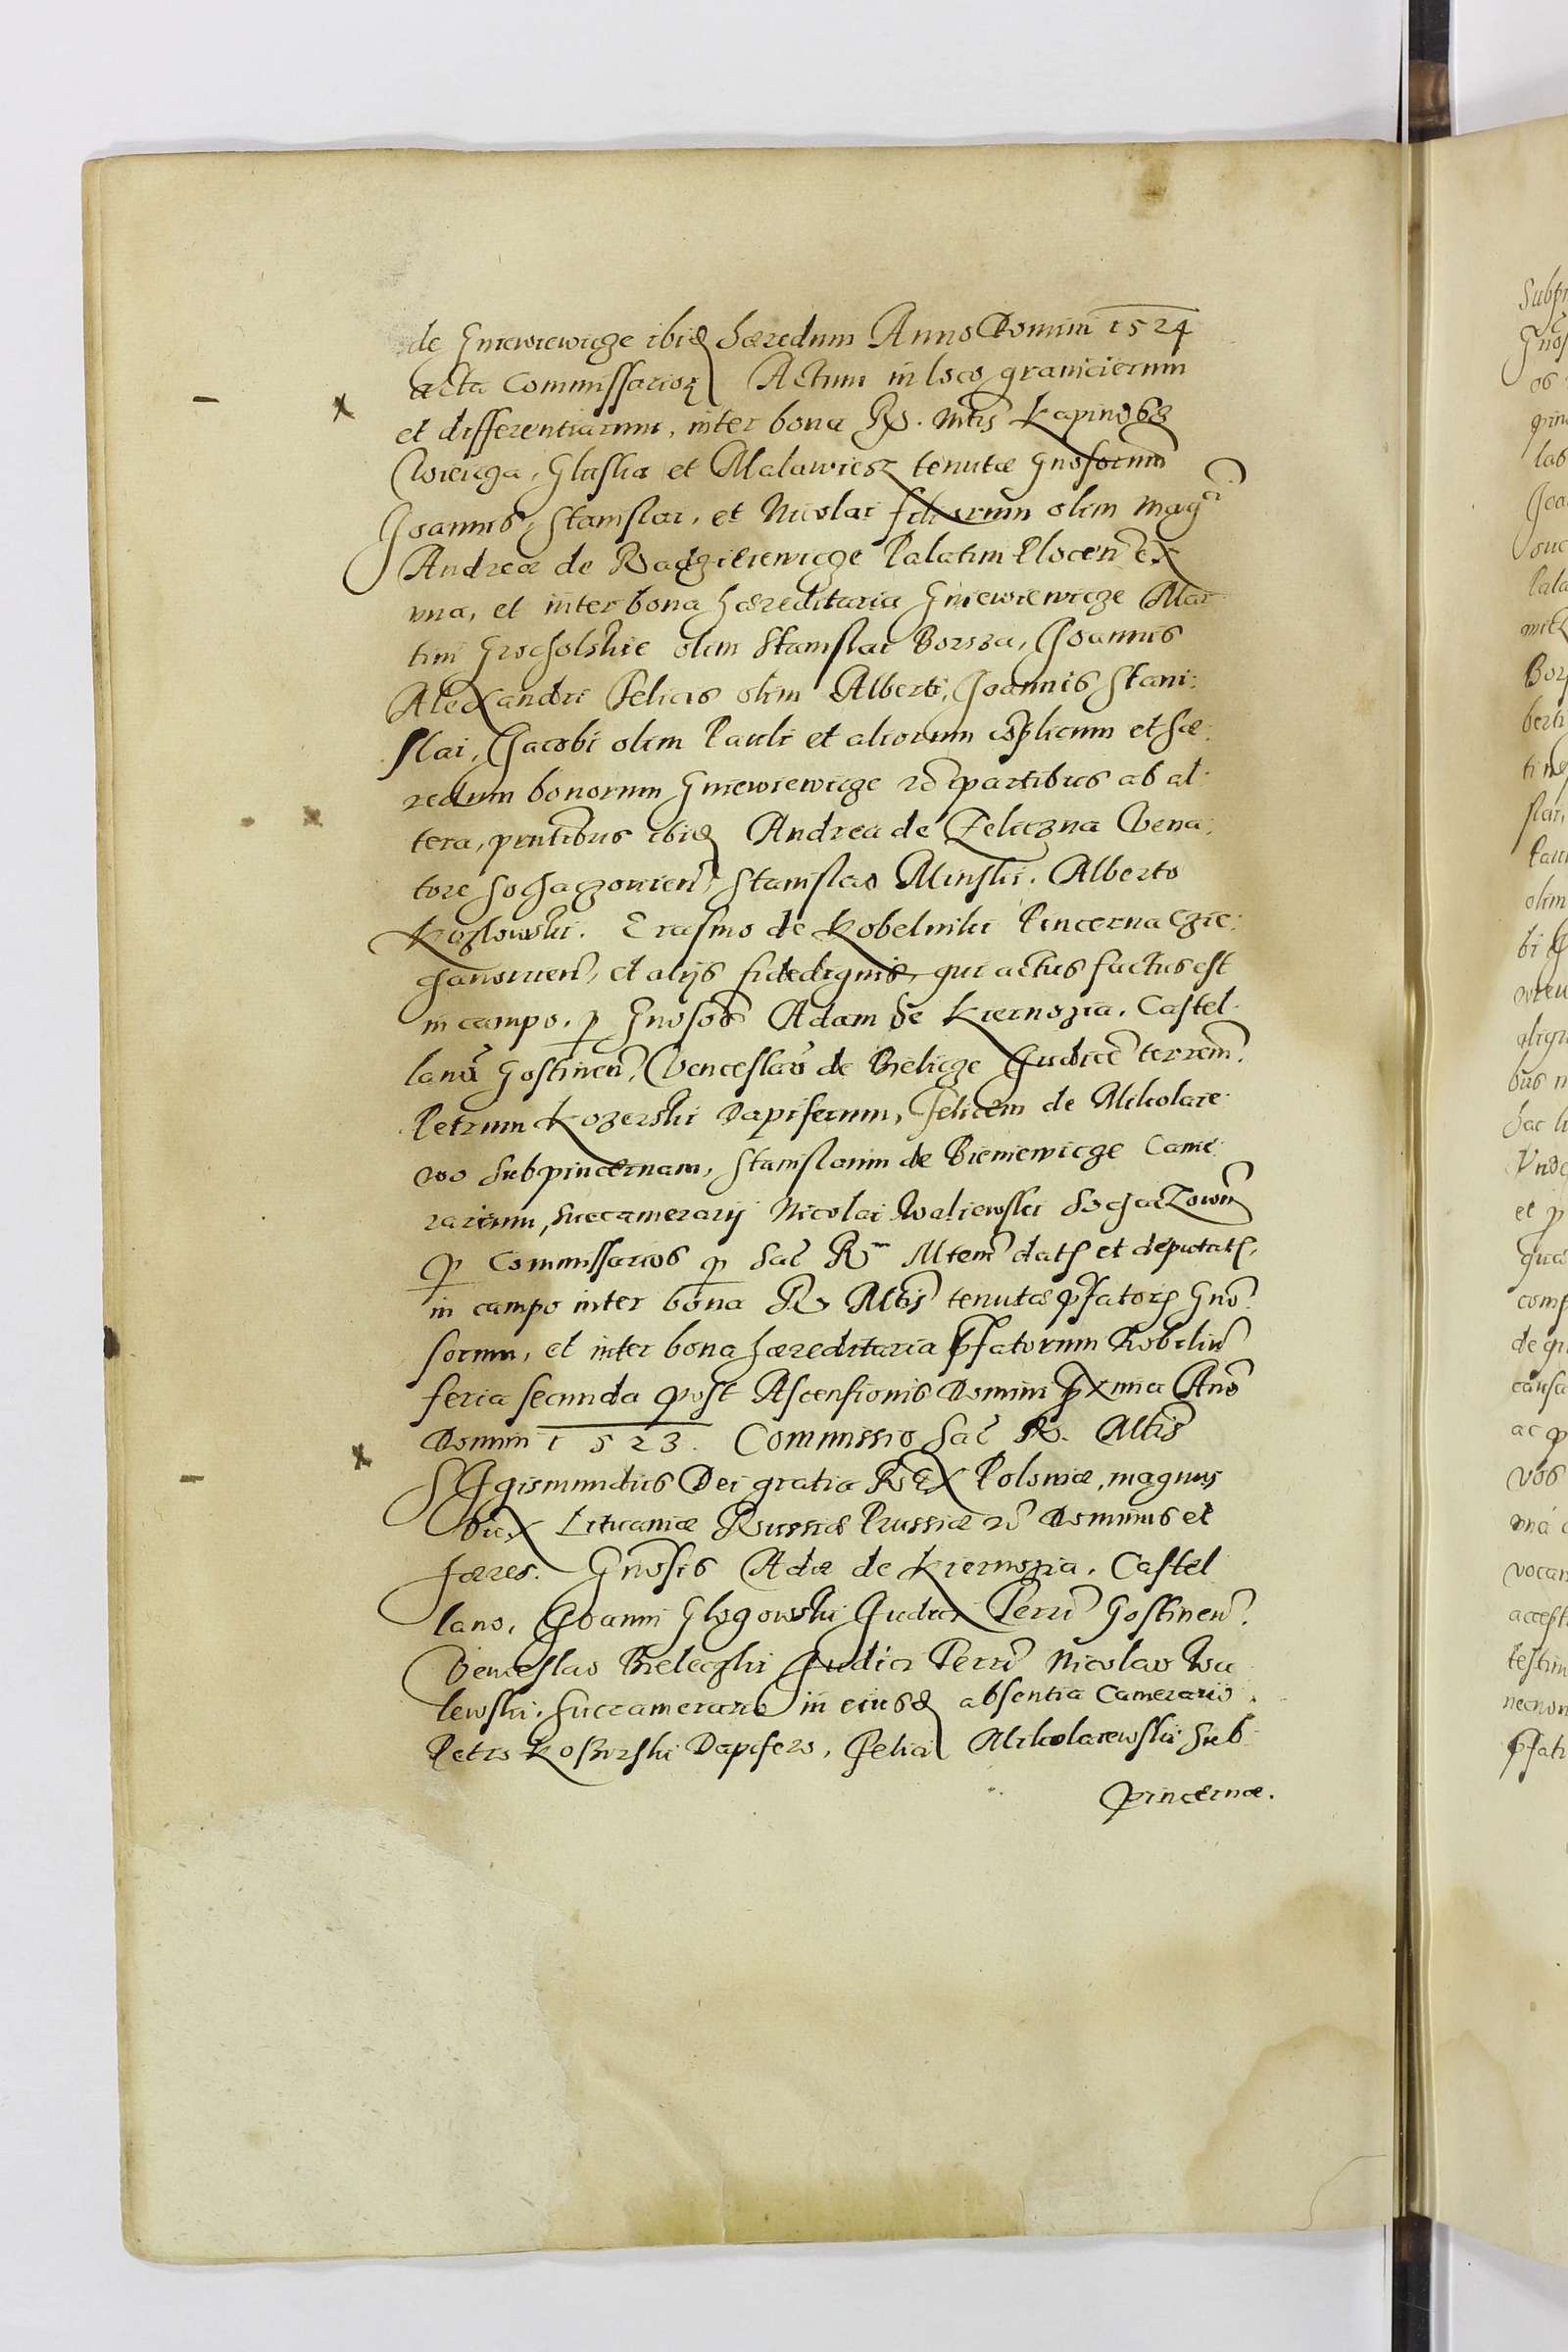 de Gniewiewicze ibid haeredum Anno Domini 1524
acta Commissarior Actum in loco graniciernm
et differentiarum, inter bona R. Mtis Kapinos
Wieiga, Gluska et Malawiesz tenutæ Gnosorum
Joannis, Stanislai, et Nicolai filiorum olim Mag
Andreæ de Radziеiewicze Palatini Plocen ex
vna, et inter bona hæreditaria Gniewiewicze Mar
tini Grocholskie olim Stanislai Borsza, Joannis
Alexandri Felicis olim Alberti, Joannis Stani:
slai, Jacobi olim Pauli et aliorum cōplicum et hæ:
redum bonorum Gniewiewicze partibus ab al:
tera, pntibus ibid Andrea de Zeliczna Vena:
tore Sochaczouien, Stanislao Minski. Alberto
Kozlowski. Erasmo de Kobelniki Pincerna Czie:
chanouien, et alijs fidedignis, qui actus factus est
in campo, p Gnosos Adam de Kiernozia. Castel:
lanu Gostinen, Venceslau de Bielicze Judice terrem
Petrum Kozerski Dapiferum, Felicem de Mikolaie:
wo Subpincernam, Stanislaum de Bieniewicze Came:
rarium, succamerarij Nicolai Waliewski Sochaczowin
p Commissarios p Sac R Mtem dats et deputats,
in campo inter bona R Mtis tenutæ pfator Gno:
sorum, et inter bona hæreditaria pfatorum Nobiliu
feria secunda post Ascensionis Domini pxmia Ano
Domini 1523. Commissio Sac R. Mtis
Sigismundus Dei gratia Rex Poloniæ, magnus
Dux Lituaniæ Russiæ Prussiæ Dominus et
hæres. Gnosis Adæ de Kiernozia. Castel
lano, Joanni Glogowski Judici Terræ Gostinen.
Venceslao Bieleczki Judici Terræ Nicolao Wa
lewski. Succamerario in eiusd absentia Camerario.
Petro Kosirski Dapifero, Felici Mikolaiewski Sub
pincernæ.